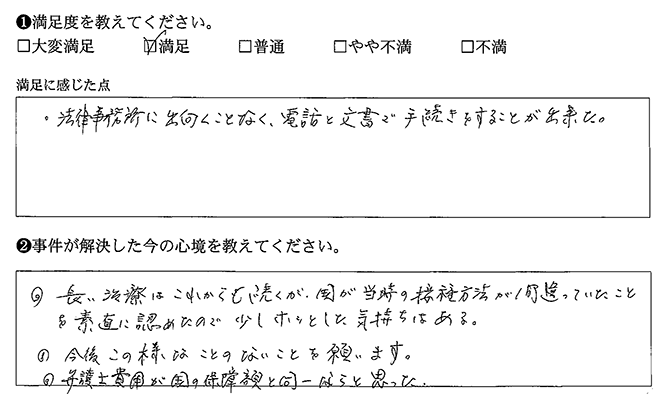 ❶満足度を教えてください。
□大変満足 ☑満足 □普通 □やや不満 □不満
満足に感じた点
・法律事務所に出向くことなく、電話と文書で手続きをすることが出来た。
❷事件が解決した今の心境を教えてください。
◎長い治療はこれからも続くが、国が当時の接種方法が間違っていたこと
を素直に認めたので少しホッとした気持ちはある。
◎今後この様なことのないことを願います。
◎弁護士費用が国の保障額と同一ならと思った。